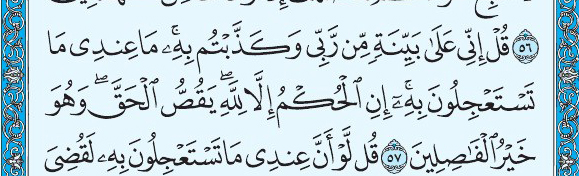 ۝٥٦ قُلْ إِنِّى عَلَىٰ بَيِّنَةٍ مِّن رَّبِّى وَكَذَّبْتُم بِهِۦ ۚ مَا عِندِى مَا
تَسْتَعْجِلُونَ بِهِۦٓ ۚ إِنِ ٱلْحُكْمُ إِلَّا لِلَّهِ ۖ يَقُصُّ ٱلْحَقَّ ۖ وَهُوَ
خَيْرُ ٱلْفَٰصِلِينَ ۝٥٧ قُل لَّوْ أَنَّ عِندِى مَا تَسْتَعْجِلُونَ بِهِۦ لَقُضِىَ